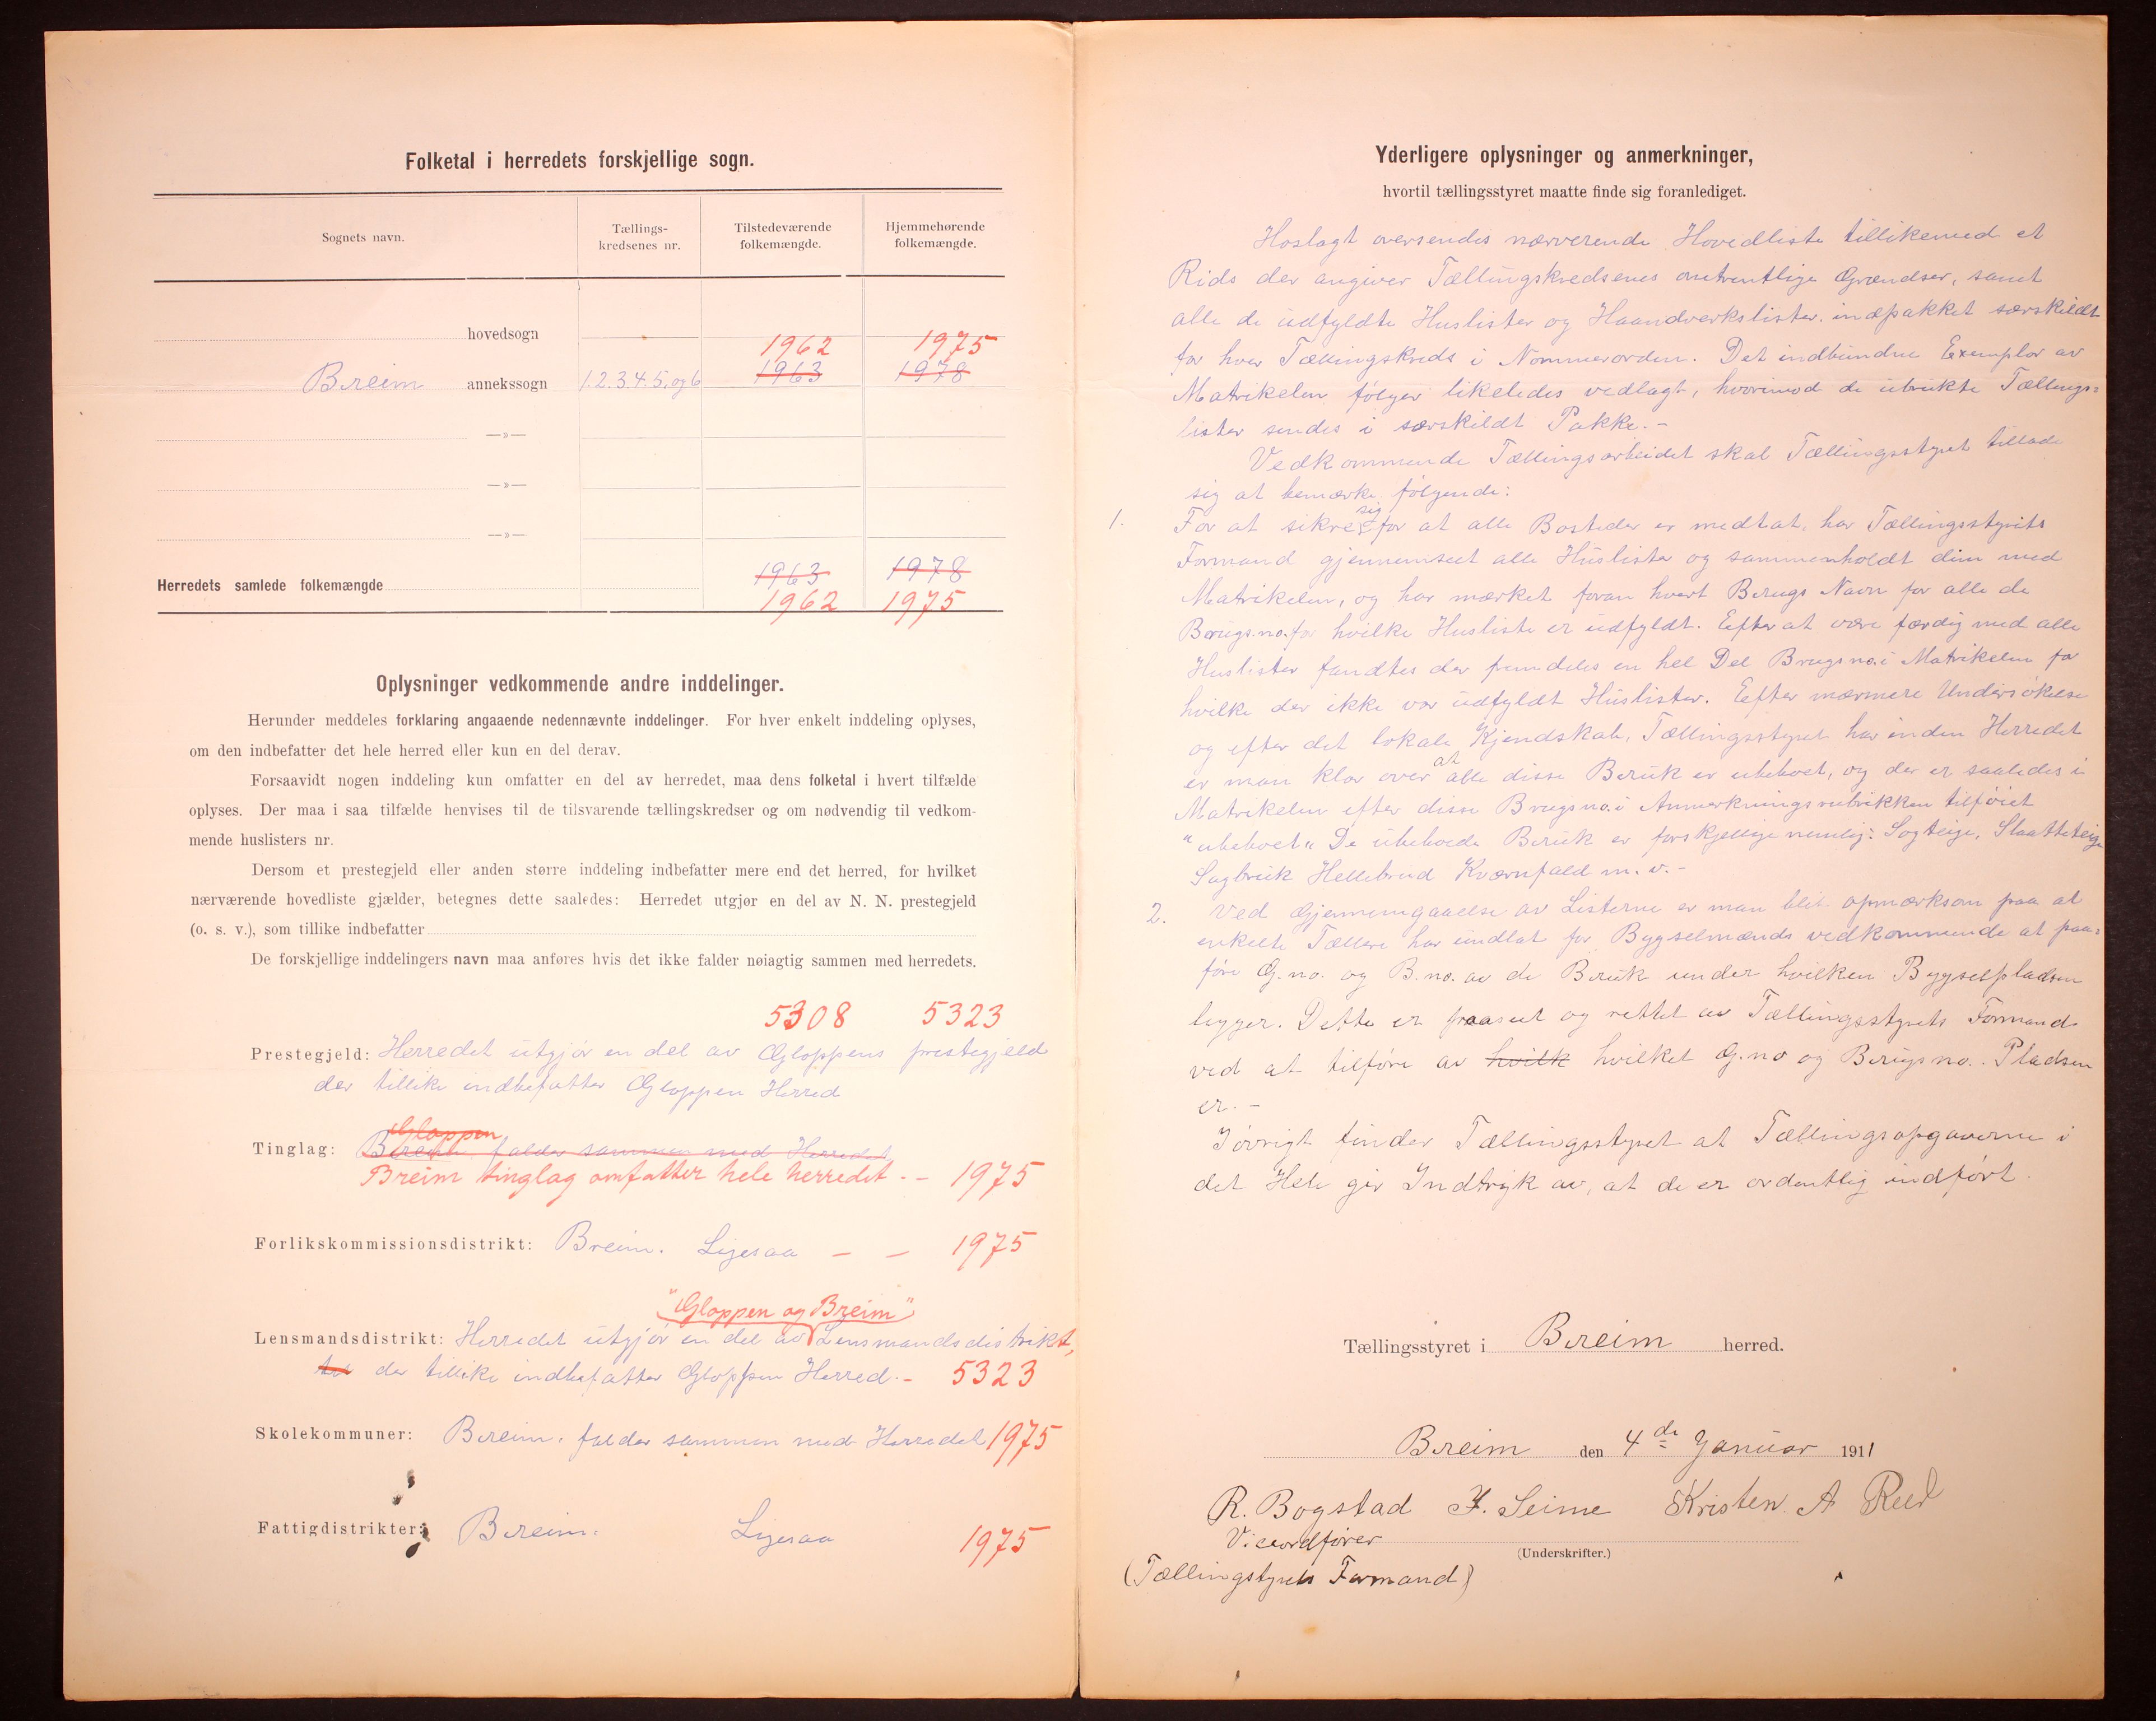 Folketal i herredets forskjellige sogn.
Sognets navn.
Tællings-
kredsenes nr.
Tilstedeværende
folkemængde.
Hjemmehørende
folkemængde.
hovedsogn
1962 1975
Breim annekssogn 1.2.3.4.5. og 6 1963 1978
—»—
—»—
—»—
1963 1978
Herredets samlede folkemængde
1962 1975
Oplysninger vedkommende andre inddelinger.
Herunder meddeles forklaring angaaende nedennævnte inddelinger. For hver enkelt inddeling oplyses,
om den indbefatter det hele herred eller kun en del derav.
Forsaavidt nogen inddeling kun omfatter en del av herredet, maa dens folketal i hvert tilfælde
oplyses. Der maa i saa tilfælde henvises til de tilsvarende tællingskredser og om nødvendig til vedkom-
mende huslisters nr.
Dersom et prestegjeld eller anden større inddeling indbefatter mere end det herred, for hvilket
nærværende hovedliste gjælder, betegnes dette saaledes: Herredet utgjør en del av N. N. prestegjeld
(o. s. v.), som tillike indbefatter
De forskjellige inddelingers navn maa anføres hvis det ikke falder nøiagtig sammen med herredets.
5308 5323
Prestegjeld: Herredet utgjör en del av Gloppens prestegjeld
der tillike indbefatter Gloppen Herred
Gloppen
Tinglag: Breim falder sammen med Herredet
Breim tinglag omfatter hele herredet. - 1975
Forlikskommissionsdistrikt: Breim. Ligesaa — — 1975
"Gloppen og Breim"
Lensmandsdistrikt: Herredet utgjör en del av Lensmandsdistrikt,
der tillike indbefatter Gloppen Herred. - 5323
Skolekommuner: Breim. falder sammen med Herredet 1975
Fattigdistrikter: Breim. Ligesaa 1975
Yderligere oplysninger og anmerkninger,
hvortil tællingsstyret maatte finde sig foranlediget.
Hoslagt oversendes nærverende Hovedliste tillikemed et
Rids der angiver Tællingskredsenes omtrentlige Grændser, samt
alle de udfyldte Huslister og Haandverkslister. indpakket særskildt
for hver Tællingskreds i Nommerorden. Det indbundne Exemplar av
Matrikelen følger likeledes vedlagt, hvorimod de ubrukte Tællings=
lister sendes i særskildt Pakke. -
Vedkommende Tællingsarbeidet skal Tællingsstyret tillade
sig at bemærke følgende:
1. For at sikre sig for at alle Bosteder er medtat, har Tællingsstyrets
Formand gjennemseet alle Huslister og sammenholdt dem med
Matrikelen, og har mærket foran hvert Brugs Navn for alle de
Brugsno. for hvilke Husliste er udfyldt. Efter at være færdig med alle
Huslister fandtes der fremdeles en hel Del Brugsno. i Matrikelen for
hvilke der ikke var udfyldt Huslister. Efter nærmere Undersökelse
og efter det lokale Kjendskab, Tællingsstyret har inden Herredet
er man klar over at alle disse Bruk er ubeboet, og der er saaledes i
Matrikelen efter disse Brugsno. i Anmerkningsrubrikken tilföiet
"ubeboet" De ubeboede Bruk er forskjellige nemlig: Sogteige, Slaatteteige
Sagbruk Hellebrud Kværnfald m. v. -
2. Ved Gjennemgaaelse av Listerne er man blit opmærksom paa at
enkelte Tællere har undlat for Bygselmænds vedkommende at paa=
före G.no. og B.no. av de Bruk under hvilken Bygselpladsen
ligger. Dette er paaseet og rettet av Tællingsstyrets Formand
ved at tilföre av hvilk hvilket G.no og Brugsno. Pladsen
er. -
Iövrigt finder Tællingsstyret at Tællingsopgaverne i
det Hele gir Indtryk av, at de er ordentlig indfört.
Tællingsstyret i Breim herred.
Breim den 4de Januar 1911
R. Bogstad J. Seime Kristen A Reed
Viseordfører
(Underskrifter.)
(Tællingstyrets Formand)